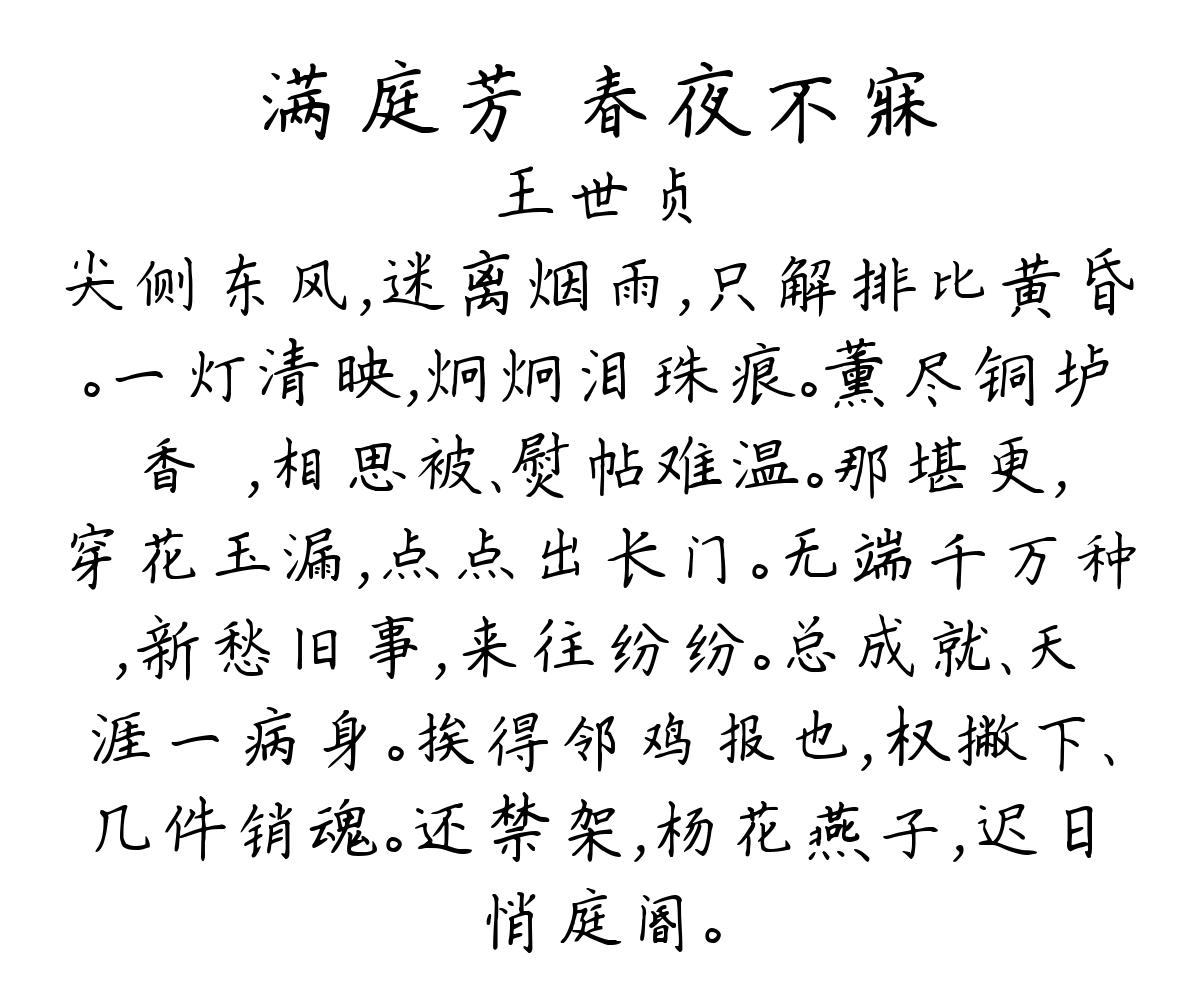 满庭芳 春夜不寐
王世贞
尖侧东风,迷离烟雨,只解排比黄昏
。一灯清映,炯炯泪珠痕。薰尽铜垆
香 ,相思被、熨帖难温。那堪更,
穿花玉漏,点点出长门。无端千万种
,新愁旧事,来往纷纷。总成就、天
涯一病身。挨得邻鸡报也,权撇下、
几件销魂。还禁架,杨花燕子,迟日
悄庭阍。